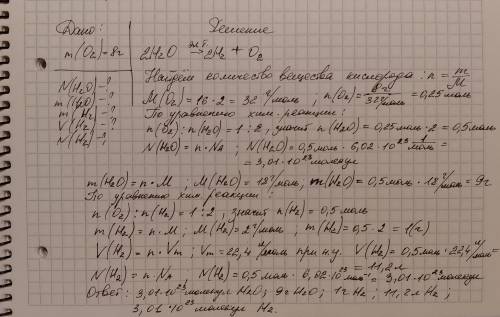 Дано:
m(O₂)=8г
N(H₂O)-?
m(H₂O)-?
m(H₂)-?
V(H₂)-?
N(H₂)-?
Решение
2H₂O эл.т.→ 2H₂ + O₂
Найдём количество вещества кислорода: n = m/M
M(O₂) = 16·2 = 32 г/моль; n(O₂) = 8г/32г/моль = 0,25 моль
По уравнению хим. реакции:
n(O₂) : n(H₂O) = 1:2, значит n(H₂O) = 0,25моль·2 = 0,5 моль
N(H₂O) = n·Nа; N(H₂O) = 0,5 моль·6,02·10²³ моль =
= 3,01·10²³ молекул
m(H₂O) = n·M; M(H₂O) = 18 г/моль; m(H₂O) = 0,5 моль·18 г/моль = 9г
По уравнению хим. реакции:
n(O₂) : n(H₂) = 1:2, значит n(H₂) = 0,5 моль
m(H₂) = n·M; M(H₂) = 2 г/моль; m(H₂) = 0,5·2 = 1(г)
V(H₂) = n·Vm; Vm = 22,4 л/моль при н.у. V(H₂) = 0,5моль·22,4 л/моль=
= 11,2 л
N(H₂) = n·Nа, N(H₂) = 0,5 моль·6,02·10²³ моль⁻¹ = 3,01·10²³ молекул
Ответ: 3,01·10²³ молекул H₂O; 9г H₂O; 1г H₂; 11,2л H₂;
3,01·10²³ молекул H₂.